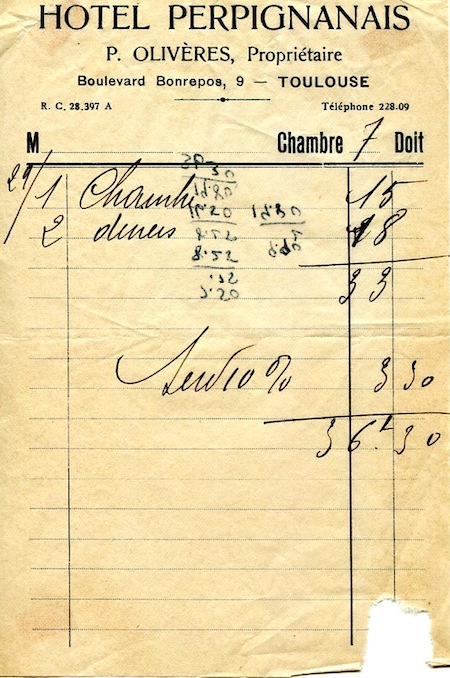 HOTEL PERPIGNANAIS
P. OLIVÈRES, Propriétaire
Boulevard Bonrepos, 9 — TOULOUSE
R. C. 28.397 A Téléphone 228.09
M Chambre 7 Doit
1 Chambre 15
2 diners 18
33
Serv 10 % 3 30
36f 30